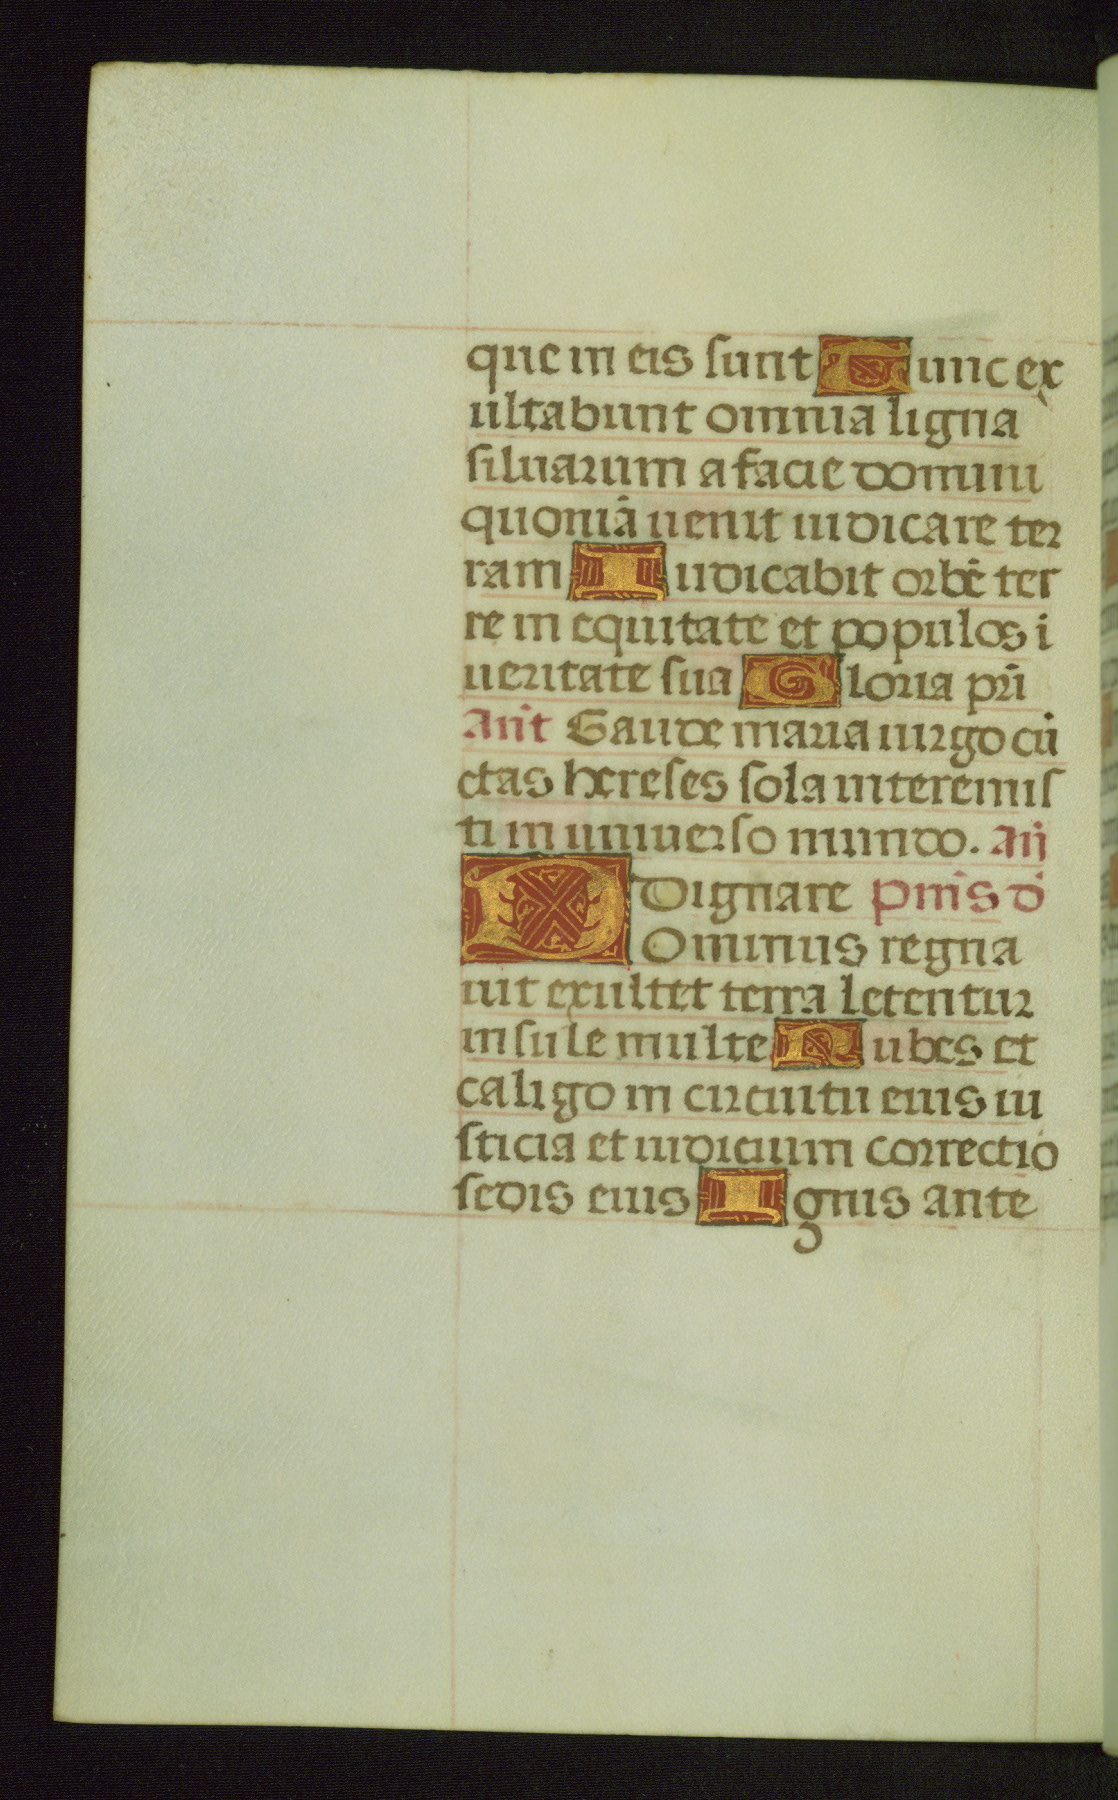 que in eis sunt Tunc ex
ultabunt omnia ligna
siluarum a facie domini
quoniā uenit iudicare ter
ram Iudicabit orbē ter
re in equitate et populos ī
ueritate sua Gloria pr̄i
Añt Gaude maria uirgo cū
ctas hereses sola interemis
ti in uniuerso mundo. Añ
Dignare psm̄s d̄
Dominus regna
uit exultet terra letentur
insule multe Nubes et
caligo in circuitu eius iu
sticia et iudicium correctio
sedis eius Ignis ante